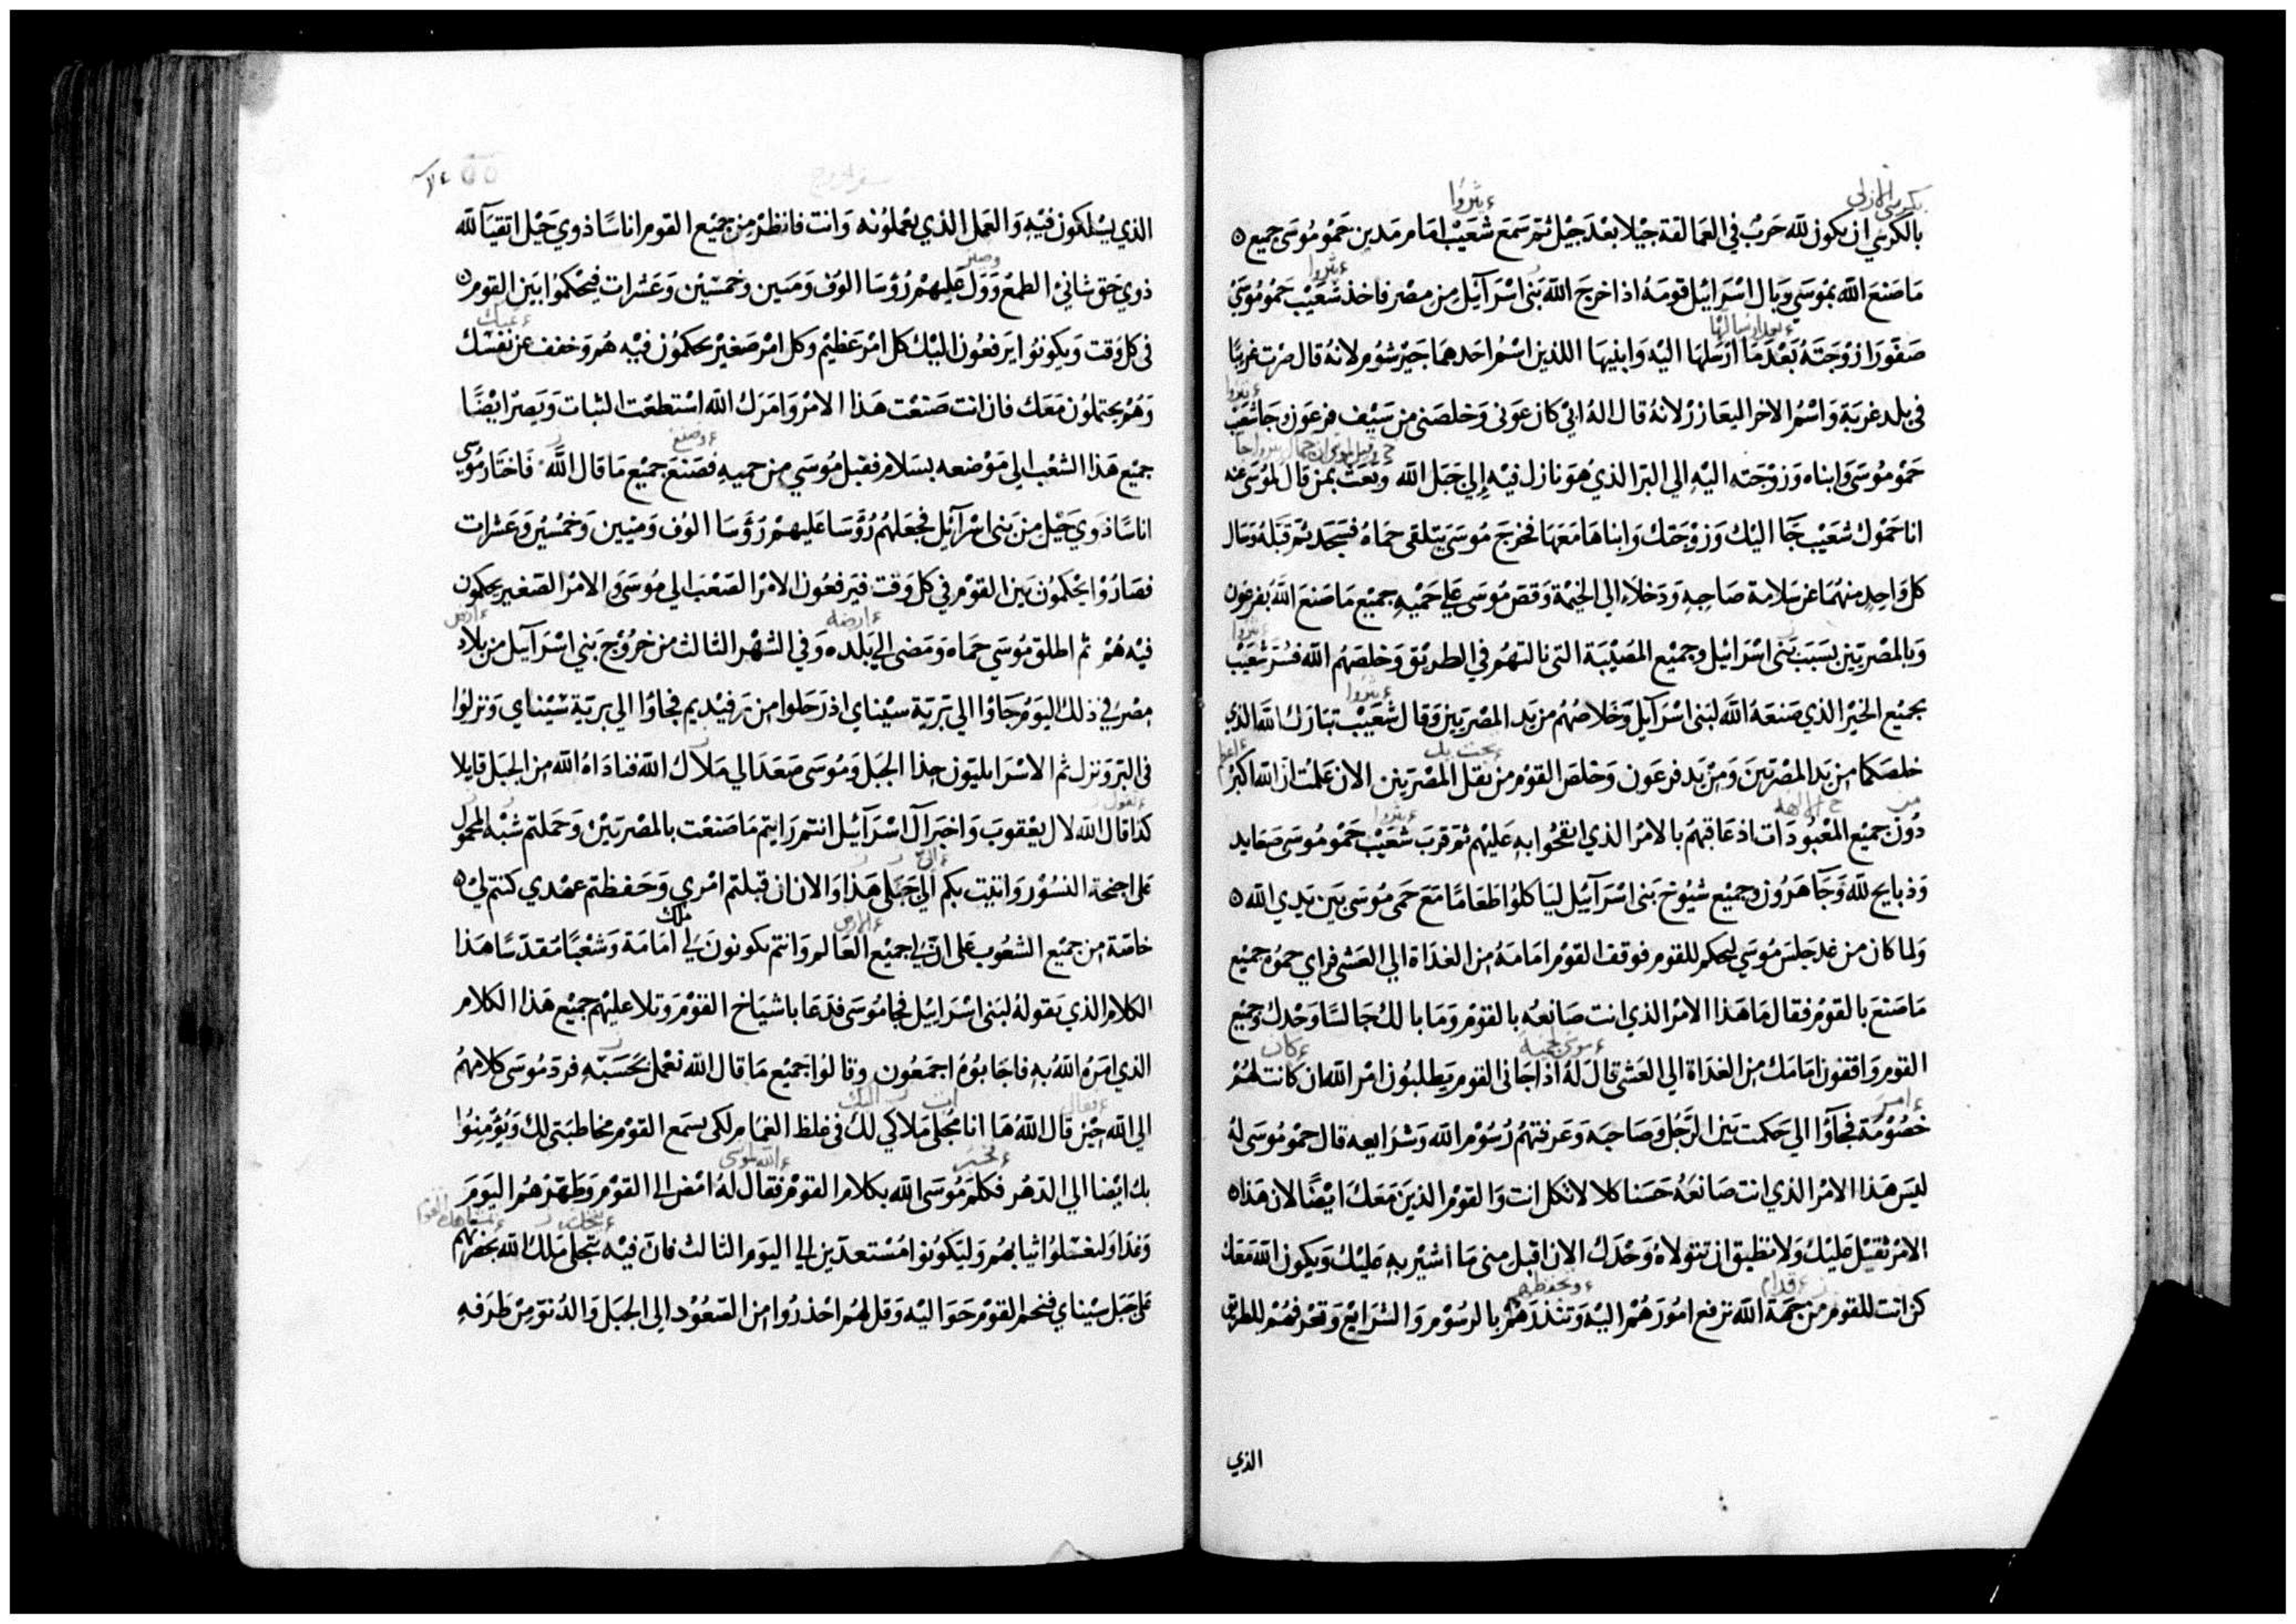 بالكرسي ان يكون لله حَرْبٌ في العمالقة جيلا بعْدَ جيْل ثم سَمعَ شعَيْبْ امَام مَدين حَمْو مُوسَى جميع
مَا صَنعَ الله بموسَي وَبال اسْرَائيْل قومَهُ اذ اخرجَ الله بَنى اسْرَآئيل مِن مصْر فاخذ شعَيْبْ حَمُو مُوسَى
صَفّورَا زوْجَتَهُ بَعْدَ مَا ارْسَلهَا اليْه وَابنيهَا اللذين اسْمُ احَدهمَا جَيْرشوُم لانهُ قال صرْت غريبًا
فى بلد غربَة وَاسْمُ الاخر اليعَازر لانهُ قال الهُ ابىْ كان عَونى وَخلصَنى من سَيْف فرعَون وجَا شعَيْب
حَمْو مُوسَى وَابناه وَزوْجَته اليْهِ الي البَر الذيْ هوَ نازل فيْهِ إلىَ جَبَل الله وَبَعَثَ بمن قال لمُوسَى عنه
انا حَمْوك شعَيْب جَآ اليْك وَزوْجَتك وَابناهَا مَعَهَا فخرجَ مُوسَى يتلقى حَمَاهُ فسَجَد ثم قبّلهُ وَسَال
كل وَاحِدٍ منهُمَا عَن سَلامَة صَاحِبهِ وَدَخلاَ الي الخيْمة وَقصَ مُوسَى عَلي حَمْيهِ جميْع مَا صَنعَ اللَّهُ بفرعَون
وَبالمصْريّين بسَبَب بَنى اسْرَائيْل وجميْع المصيْبَة التى نالتهُم فى الطريْق وَخلصَهُم الله فسُرَّ شعَيْبْ
بجميْع الخيْر الذي صَنعَهُ اللَّه لبَنى اسْرَآيل وَخلاصُهُم من يَد المصْريّين وَقال شعَيْبْ تبَارَكَ اللَّه الذي
خلصَكما من يَد المصْريّينَ وَمِنْ يَد فرعَون وَخلصَ القوْم منْ نقل المصْريين الان عَلمْت انَّ اللهَ اكبَرْ
دُونَ جميْع المعْبُودَات اذ عَاقبهُم بالامْر الذي اتقحُوا بهِ عَليْهم ثم قربَ شعَيْبْ حَمْو مُوسَى صَعَايد
وَذبايح للهِ وَجَآ هَرُون وجميْع شيُوخ بَنى اسْرَآئيْل ليَاكلوُا طَعَامًا مَعَ حَمى مُوسَى بَين يَدي الله
وَلما كان من غد جَلسَ مُوسَي ليحكم للقوم فوقف القوْم امَامَهُ من الغدَاة الي العَشى فراي حموُهُ جميْع
مَا صَنعَ بالقوْم فقال مَا هَذا الامْر الذي انت صَانعُه بالقوْم وَمَا بالكْ جَالسًا وَحْدكْ وجميْع
القوم وَاقفون امَامَك من الغدَاة الي العَشى قال لهُ اذا جَانى القوم يَطلبُون امْر الله ان كانت لهُمْ
خصُوْمَة فجآؤا الي حَكمت بَين الرَّجُل وَصَاحبَه وَعَرفتهُمْ رُسُوم الله وَشرَايعه قال حمْو مُوسَى لهُ
ليسَ هَذا الامْر الذي انت صَانعَهُ حَسَنا كلا لا تكل انت وَالقوْم الذينَ مَعَكَ ايْضًا لان هَذا
الامْر ثقيْل عَليْك وَلا تطيق ان تتولاهُ وَحْدَك الان اقبل منى مَا اشيْر بهِ عَليْك وَيكون الله مَعَك
كن انت للقوم من جهَة الله ترفع امُورَهُمْ اليْهِ وَتنذرَهُمْ بالرسُوْم وَالشرَايع وَتعَرفهُمْ للطريْق
الذي
الذي يسْلكون فيْهِ وَالعَمل الذي يعْملوُنه وَانت فانظر من جميْع القوم اناسًا ذوي حَيْل اتقيَآ لله
ذوي حَق شانىْ الطمْع وَوَل عَليهمْ رُؤسَا الوُف وَمَيين وخمسيْن وَعَشرَات فيحْكموُا بَين القوم
فى كل وَقت وَيكونوُا يَرفعُون اليْك كل امْر عَظيْم وكل امْر صَغيْر يحكمُون فيْهِ هُم وَخفف عَن نفسْك
وَهُمْ يحتملوُن مَعَك فان انت صَنعْت هَذا الامْر وَامَرَك الله اسْتطعْت الثبات وَيَصيْر ايْضًا
جميْع هَذا الشعْب الي مَوْضعه بسَلام فقبل مُوسَي من حميهِ فصَنعَ جميْع مَا قال اللَّه فاختَار مُوسي
اناسًا ذوي حَيْل من بَنى اسْرآئيل فجعَلهُم رُؤسَا عَليهمْ رَؤسَا الوُف وَميْين وَخمسيْن وَعَشرات
فصَارُوْا يحْكمُون بَين القوْم في كل وَقت فيَرفعُون الامْر الصَعْبَ الي مُوسَى وَالامْر الصَغيْر يحكمُون
فيْهِ هُمْ ثم اطلق مُوسَي حمَاه وَمَضى الي بَلده وَفي الشهْر الثالث من خرُوْج بَني اسْرآئيل من بلاد
مصْر في ذلكْ اليَوْم جَاؤا الي بَريّة سيْناي اذ رَحَلوا من رَفيْديم فجاؤا الي بَريّة سيْناي وَنزلوُا
فى البَر وَنزل ثم الاسْرايليّون حذا الجبَل وَمُوسَى صَعَدَ الي مَلاَك الله فنادَاهُ الله من الجبَل قايلا
كذا قال الله لال يعْقوبَ وَاخبَر آل اسْرَآئيْل انتم رَايتم مَا صَنعْت بالمصْريّينْ وَحَملتم شبْه المحمول
عَلى اجنحة النسُوْر وَاتيْت بكم اليَ جَبَلى هَذا وَالان ان قبلتم امْري وَحَفظتم عهْدي كنتم ليْ
خاصّة من جميْع الشعُوب عَلى انَّ لي جميْع العَالم وَانتم تكونونَ لي امَامَة وَشعْبًا مُقدّسًا هَذا
الكلام الذي تقولهُ لبَنى اسْرَائيْل فجا مُوسَى فدَعَا باشيَاخ القوْم وَتلا عليهْم جميْع هَذا الكلام
الذي امَرهُ اللهُ بهِ فاجَابوُهُ اجمَعُون وقالوُا جميْع مَا قال الله نعْمل بحَسَبهِ فردّ مُوسَى كلامهُم
الي الله حيْن قال اللهُ هَا انا مُجلى مَلاكي لك فى غلظ الغمَام لكى يسْمَع القوْم مخاطبَتى لك وَيُؤمنُوا
بك ايْضا الي الدّهْر فكلم مُوسَى الله بكلام القوْم فقال لهُ امْض الى القوْم وَطَهّرْهُم اليَومَ
وَغدَا وَليغسْلوُا ثيابهُم وَليَكونُوا مُسْتعدّين الي اليَوم الثالث فان فيْه يتجَلى مَلكْ الله بحَضرتهم
عَلى جَبَل سيْناي فنحم القوْم حَوَاليْه وَقل لهُم احْذرُوا من الصّعُوْد الي الجبَل وَالدُنوّ مِنْ طَرَفهِ